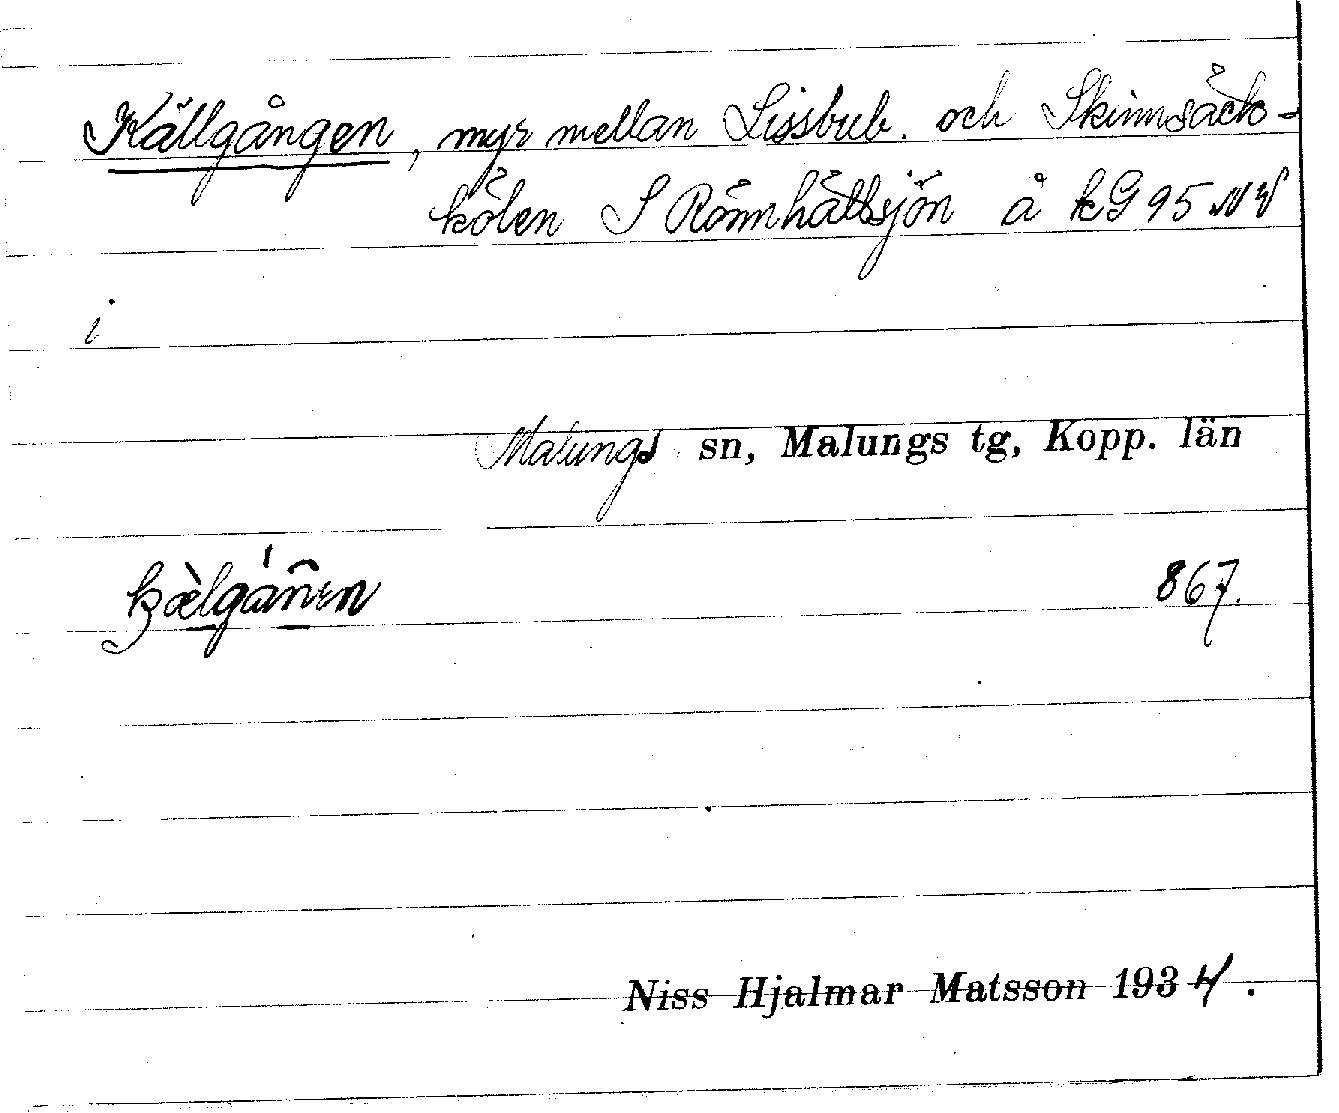 Källgången, myr mellan Lissbub. och Skinnsäck-
kölen S Rönnhättsjön å kG 95 NV
i
Malungs sn, Malungs tg, Kopp. län
867.
Niss Hjalmar Matsson 1934.